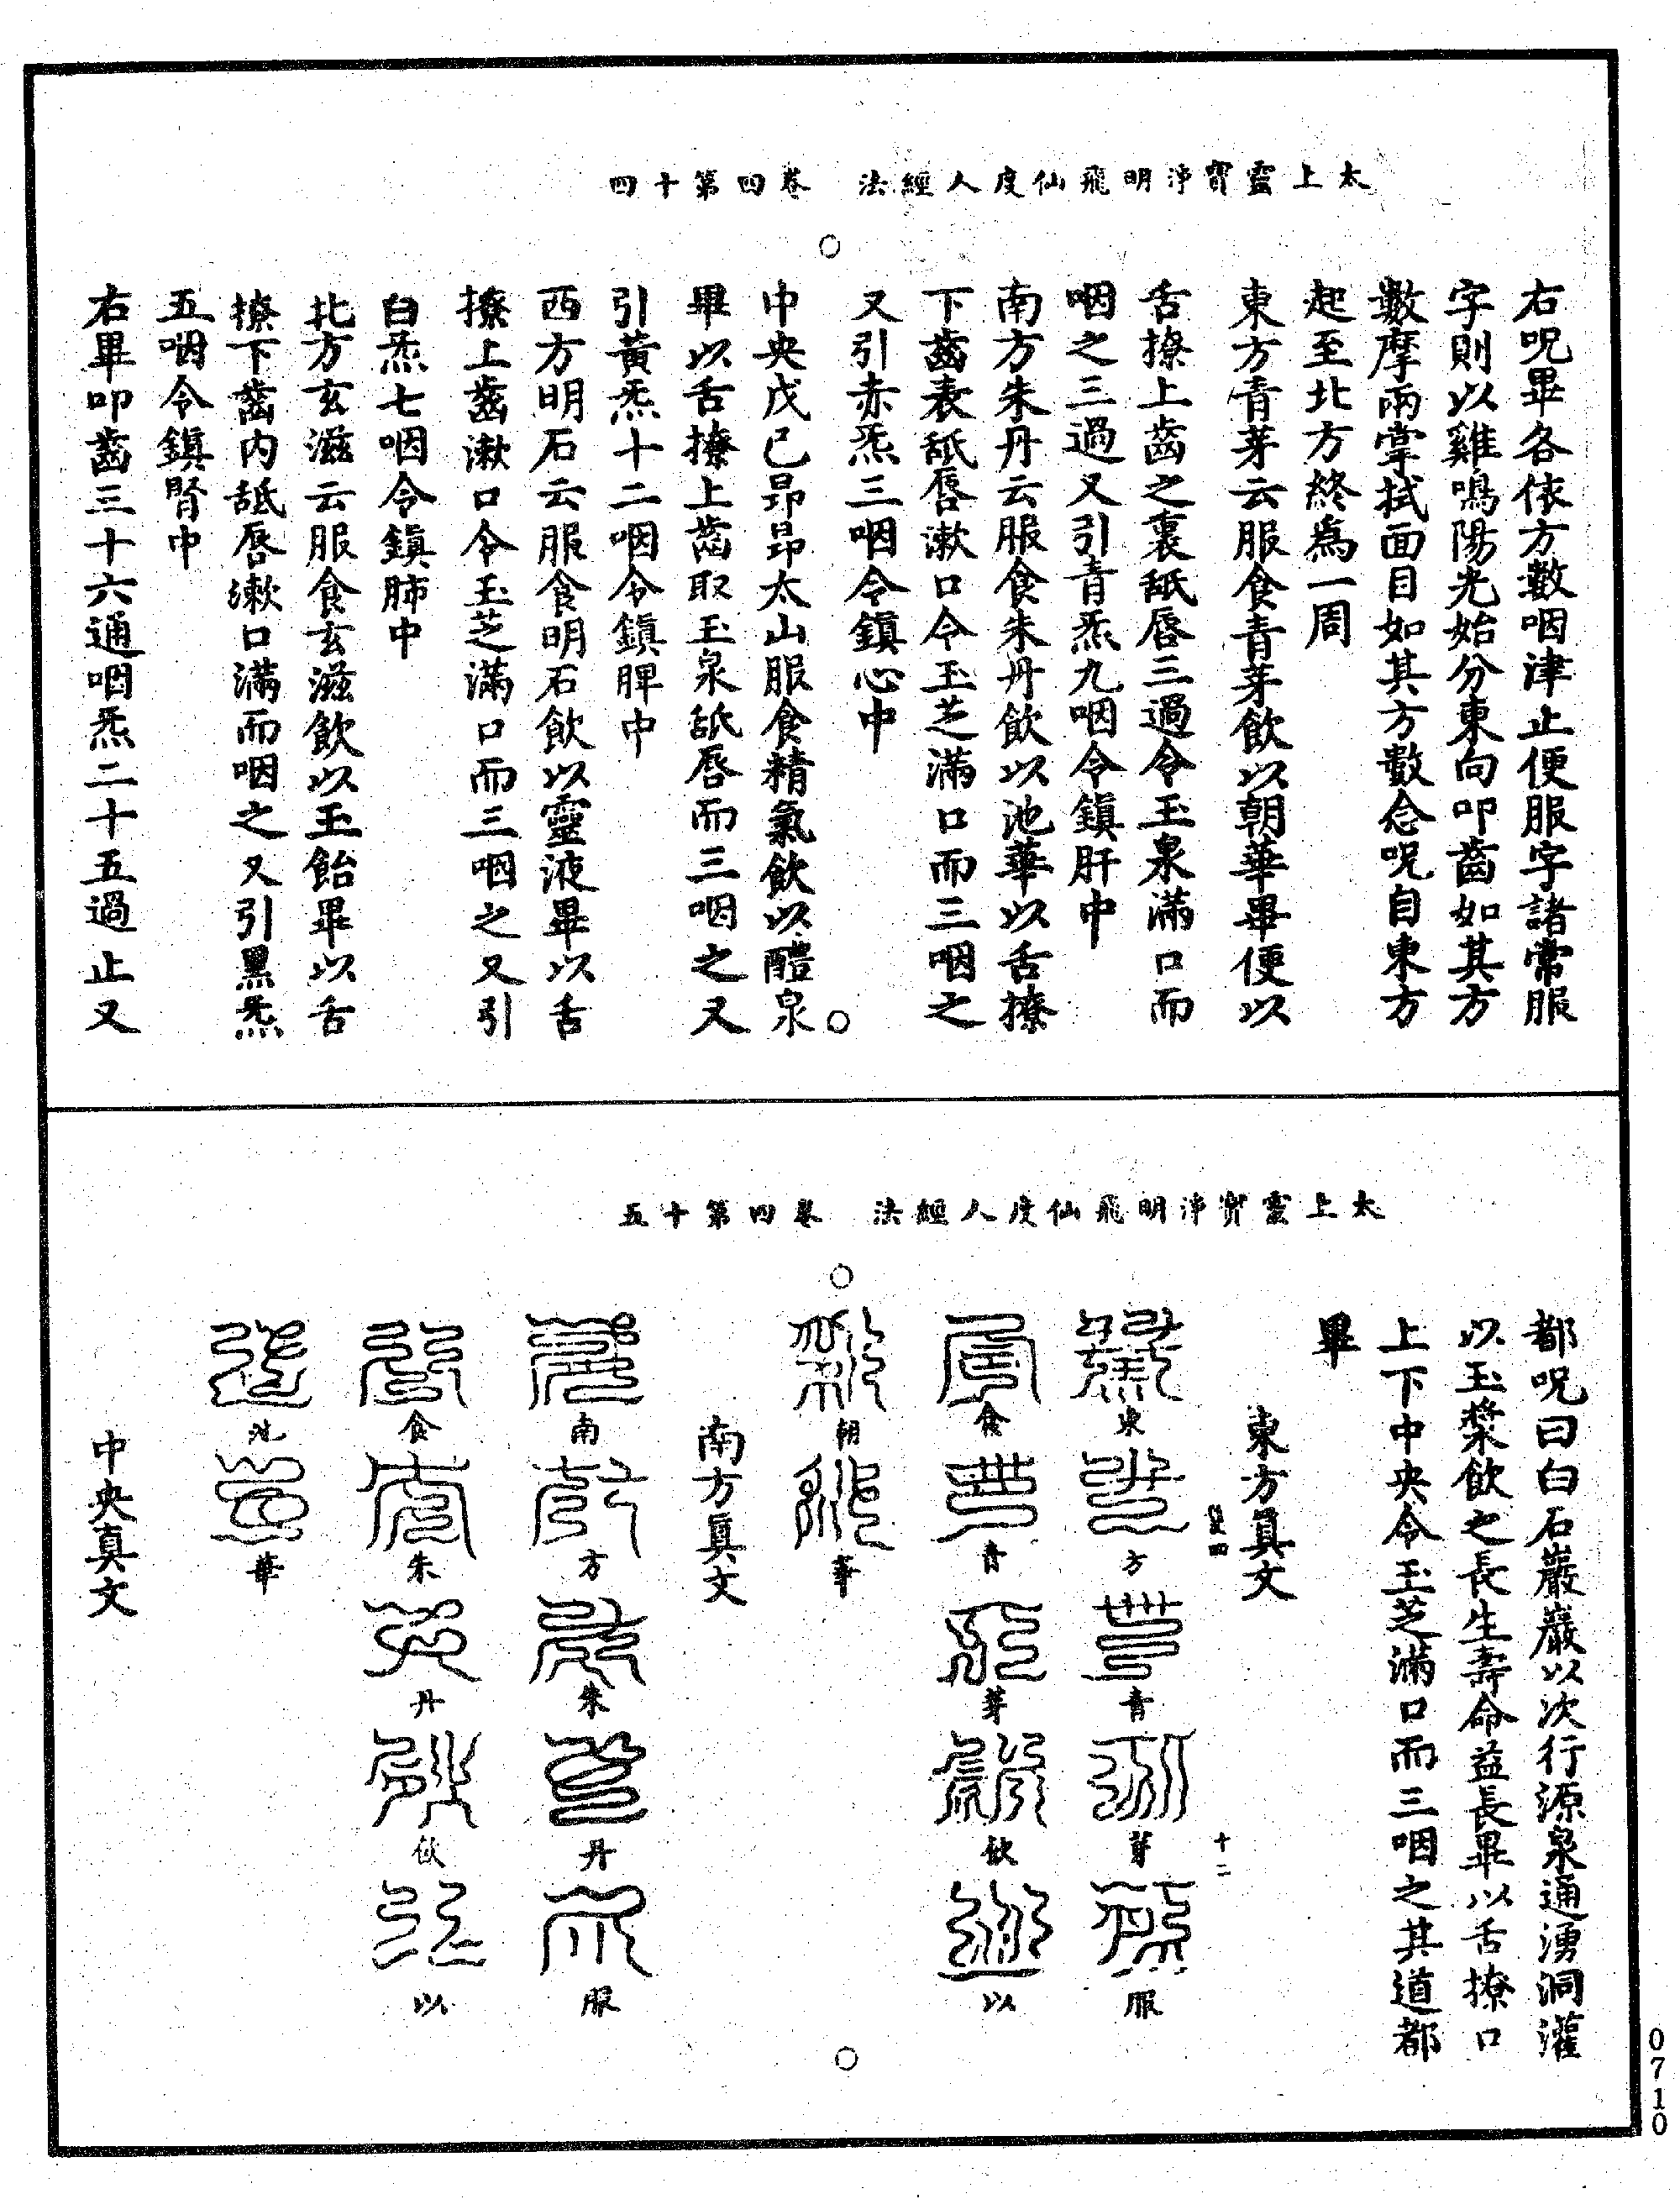 太上靈寶淨明飛仙度人經法　卷四第十四
右呪畢各依方數咽津止便服字諸常服
字則以雞鳴陽光始分東向叩齒如其方
數摩兩掌拭面目如其方數念呪自東方
起至北方終爲一周
東方青芽云服食青芽飲以朝華畢便以
舌撩上齒之裏舐唇三過令玉泉滿口而
咽之三過又引青炁九咽令鎮肝中
南方朱丹云服食朱丹飲以池華以舌撩
下齒表舐唇漱口令玉芝滿口而三咽之
又引赤炁三咽令鎮心中
中央戊己昂昂太山服食精氣飲以醴泉
畢以舌撩上齒取玉泉舐唇而三咽之又
引黃炁十二咽令鎮脾中
西方明石云服食明石飲以靈液畢以舌
撩上齒漱口令玉芝滿口而三咽之又引
白炁七咽令鎮肺中
北方玄滋云服食玄滋飲以玉飴畢以舌
撩下齒內舐唇漱口滿而咽之又引黑炁
五咽令鎮腎中
右畢叩齒三十六通咽炁二十五過止又
太上靈寶淨明飛仙度人經法　卷四第十五
都呪曰白石巖巖以次行源泉通湧洞灌
以玉漿飲之長生壽命益長畢以舌撩口
上下中央令玉芝滿口而三咽之其道都
畢
東方真文
十二
東方青芽服
食青芽飲以
朝華
南方真文
南方朱丹服
食朱丹飲以
池華
中央真文
0710